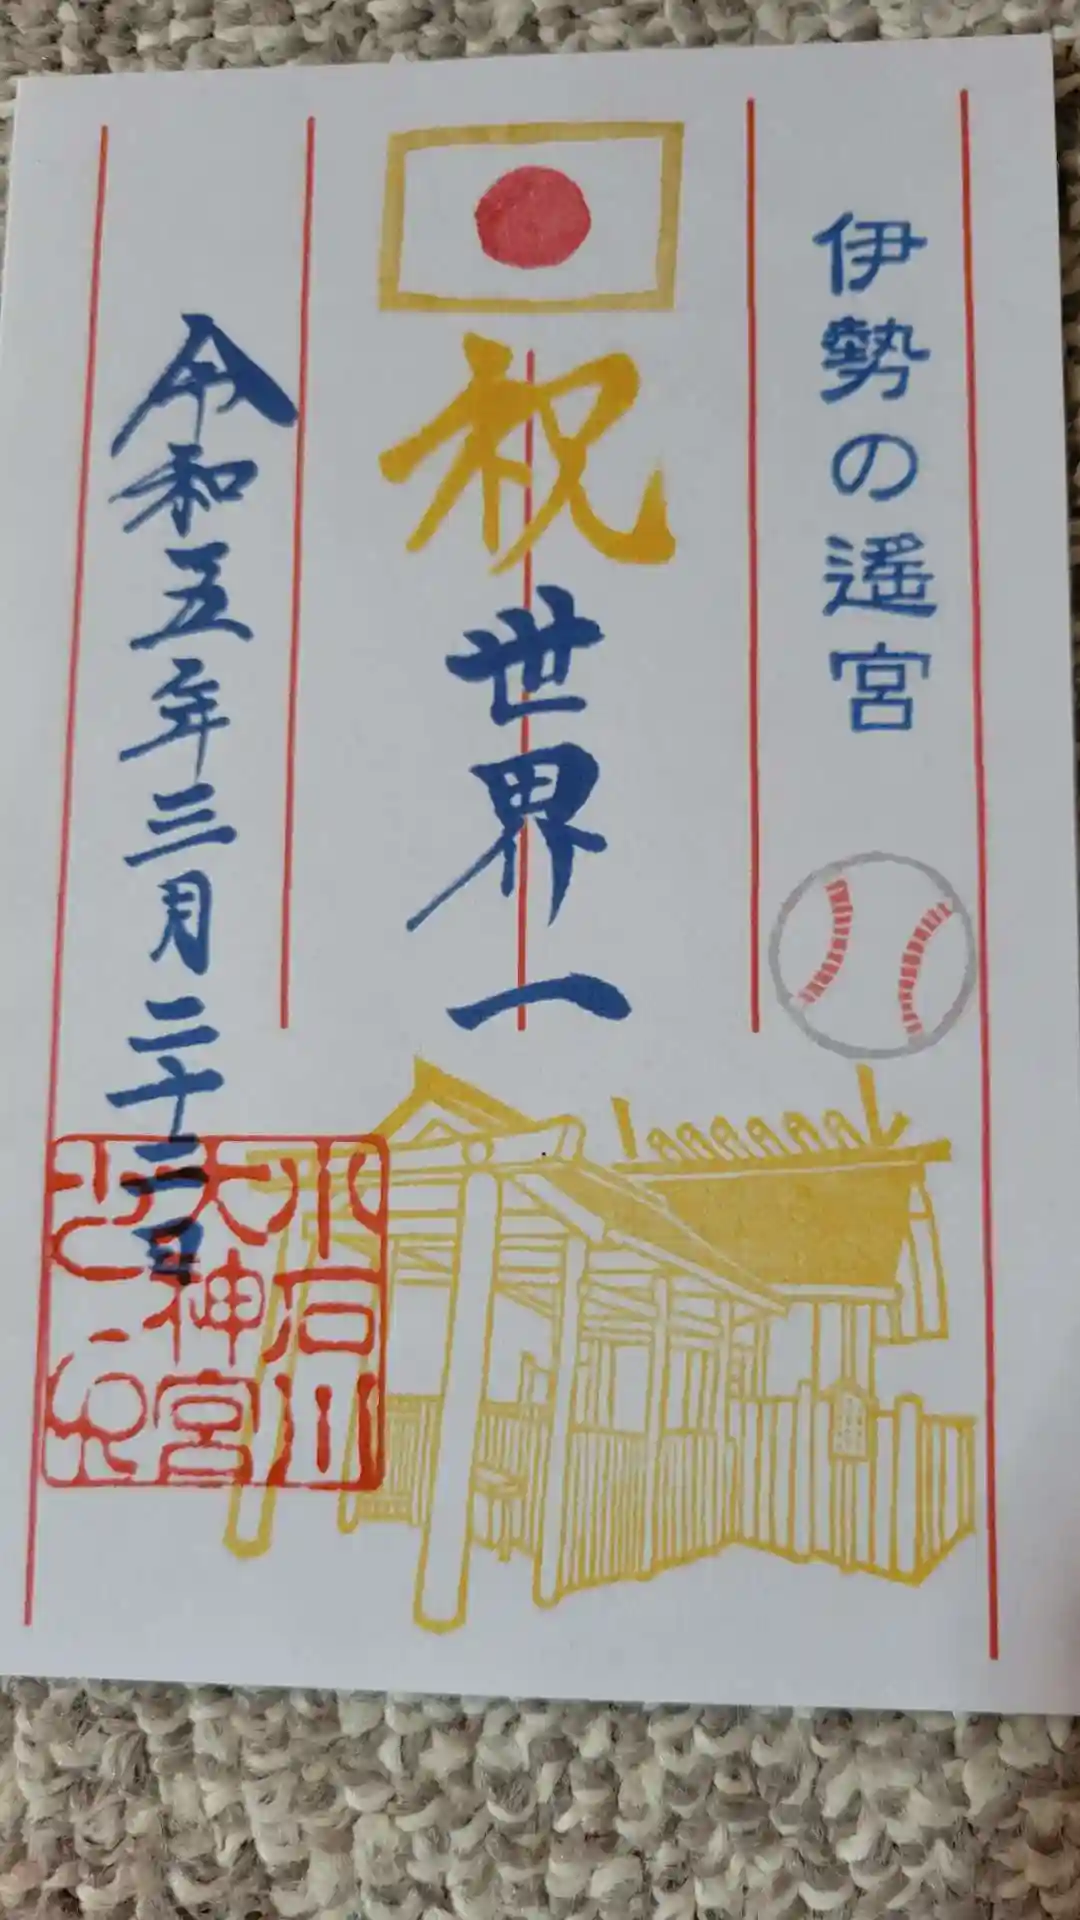 伊勢の遥宮
祝
世界一
令和五年三月二十二日
小石川
大神宮
之印